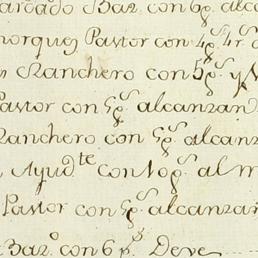 arcado Baz. con 6p.s alca
norques Pastor con 4p.s 4r.s
Ranchero con 5p.s y
Pastor con 5p.s alcanzan
Ranchero con 5p.s alcanz
Ayud.te con 10p.s al m
Pastor con 5p.s alcanzan
Baz.o con 6 p.s Deve